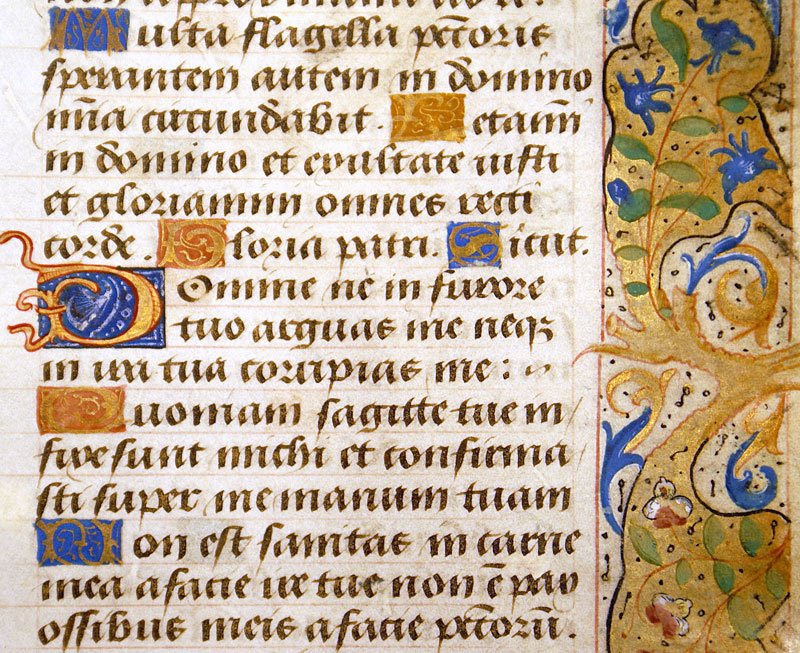 Multa flagella pctoris
sperantem autem in domino
mīa circundabit. Letamī
in domino et exultate iusti
et gloriamini omnes recti
corde. Gloria patri. Sicut.
Domine ne in furore
tuo arguas me neqꝫ
in ira tua corripias me:
Quoniam sagitte tue in
fixe sunt michi et confirma
sti super me manum tuam
Non est sanitas in carne
mea a facie ire tue non ē pax
ossibus meis a facie pctorū.